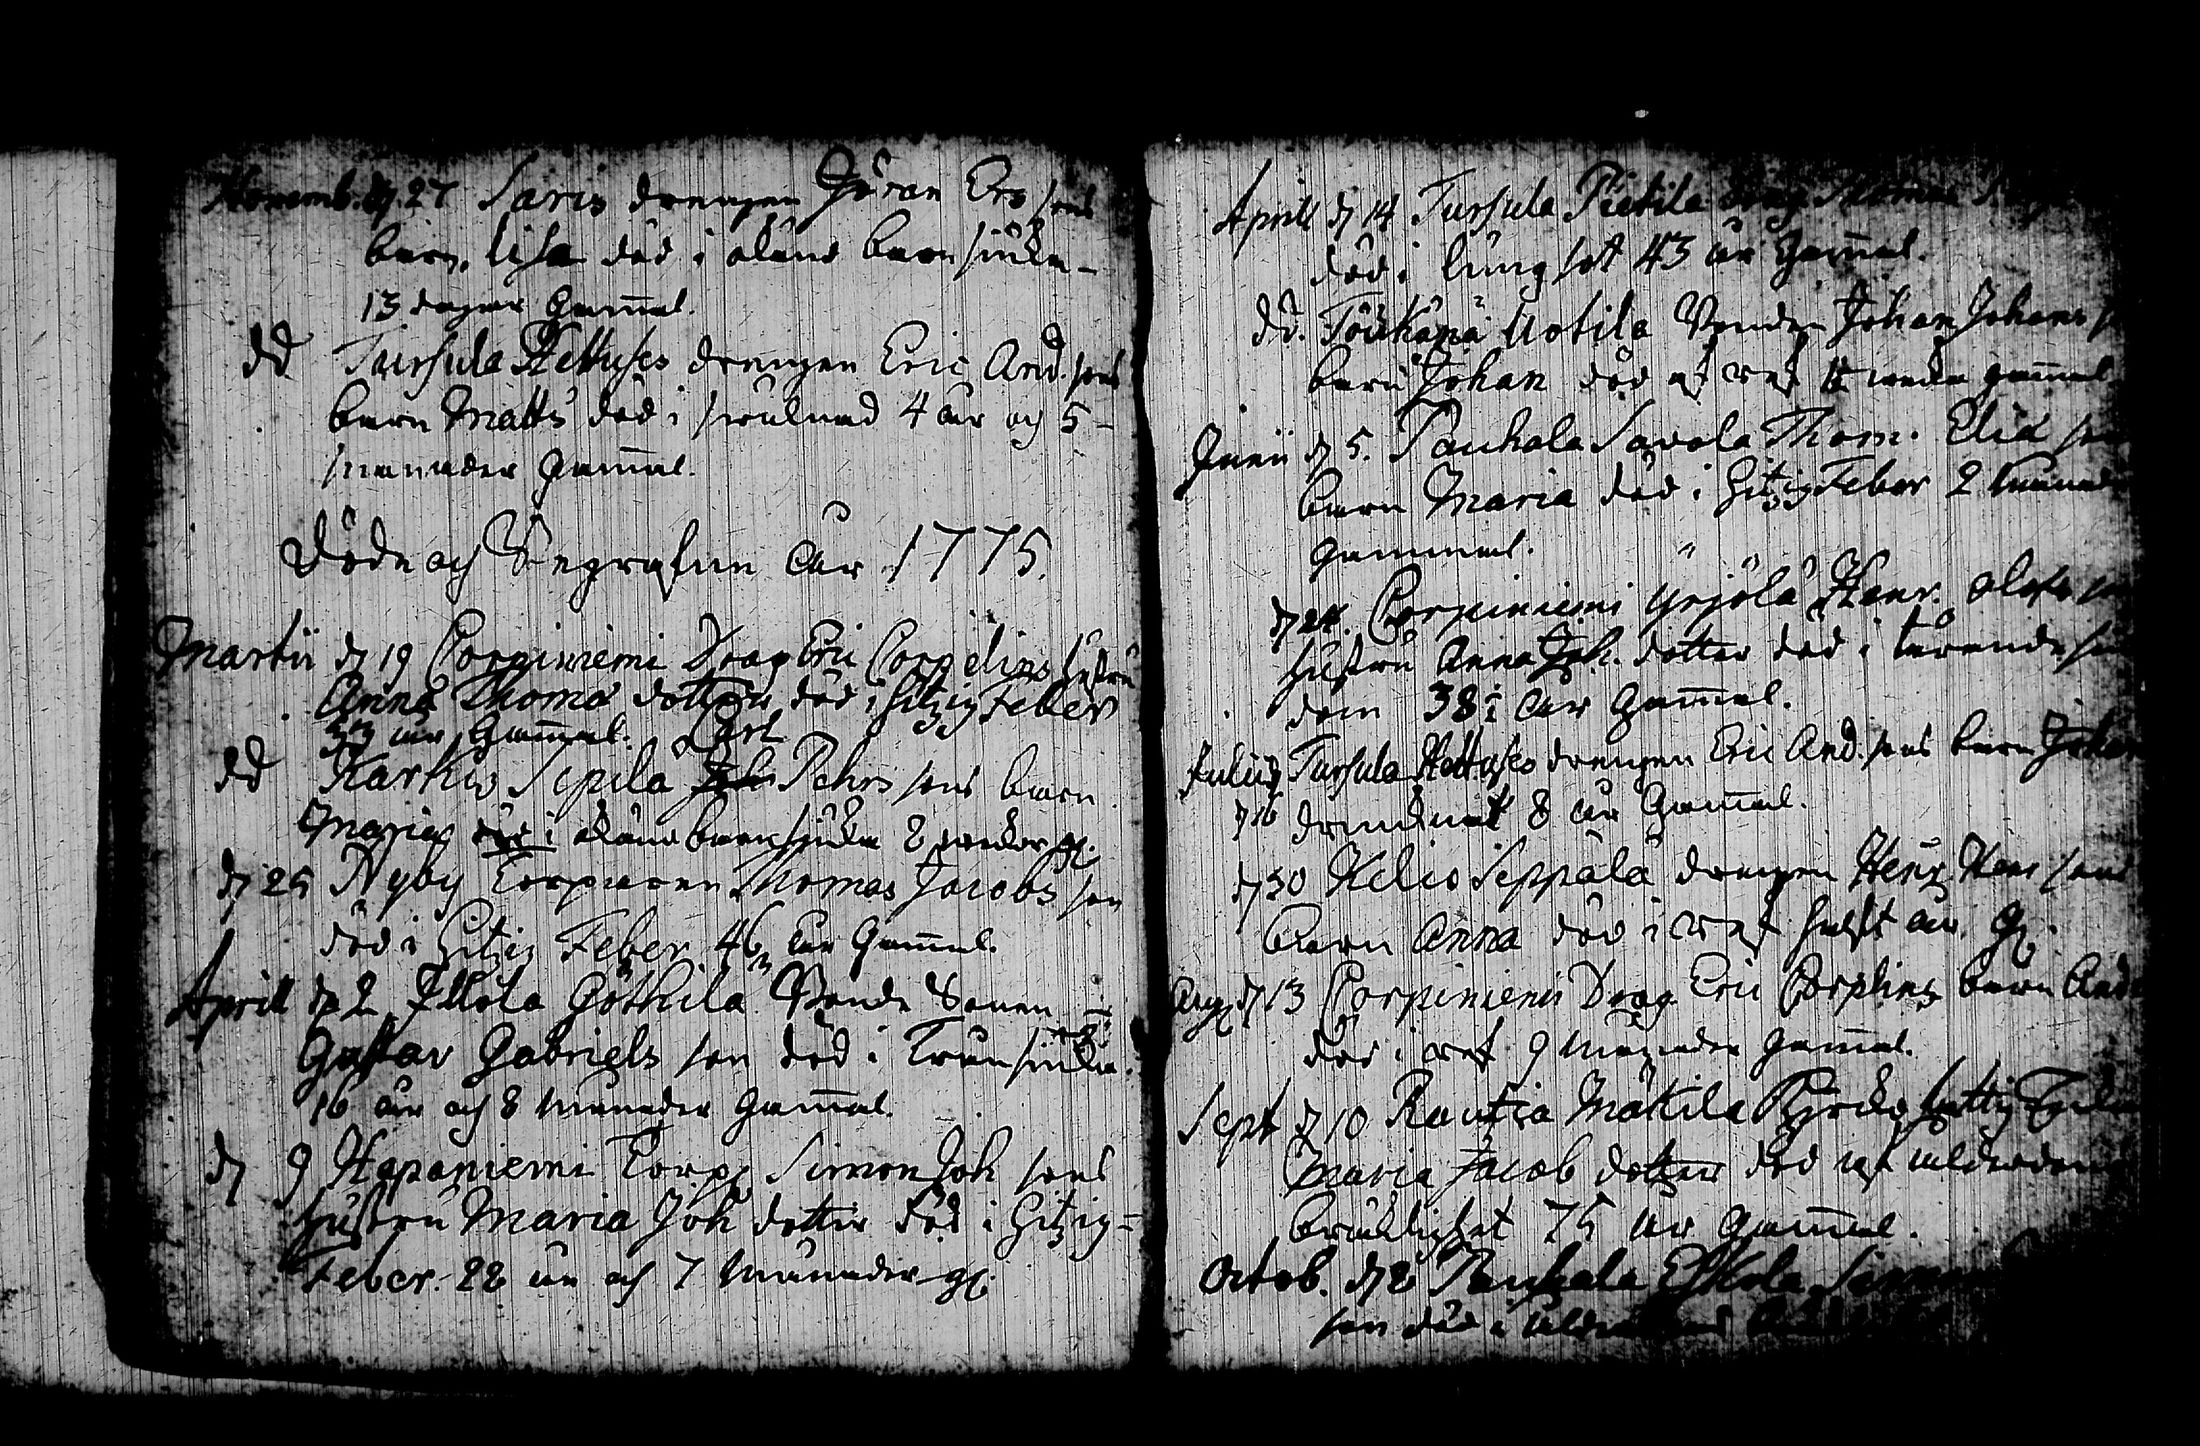 Novemb. d. 27 Saris drengen Jöran Ers sons
barn, Lisa död i okänd barn siuka-
13 dagar gammal.
dd Tursula Hettuses drengen Eric And. sons
barn Matts död i 4 år och 5-
månader gammal.
Döde och Begrafne åhr 1775.
Martii d 19 Corpiniemi Drag Eric Corpelins hustru
Anna Thoma dotter död i hitzig Feber
33 år gammal. Carl
dd Karkis Sipilä Pehrs sons barn
Maria död i okänd barn siuka 8 veckor g.
d 25 Nyby Torparen Thomas Jacobs son
död i hitzig Feber 46 år gammal.
Aprill d 2 Illola Göthilä Bonde Sonen
Gustav Gabriels son död i
16 år och 8 månader gammal.
d 9 Hapaniemi Torp. Simon Joh sons
hustru Maria Joh dotter död i hitzig-
Feber 28 år och 7 månader g.
Aprill d 14 Tursula Pietila Drag Thomas
död i lungsot 43 år gammal.
dd. Töukänä Uotila Bonden Johan Johans
barn Johan död af ref veckor gammal
Junii d 5. Pauhala Savola Thom. Elia son
barn Maria död i hitzig Feber 2 månad
gammal.
d 24. Corpiniemi Yrjölä Henr. Olofs
hustru Anna Joh. dotter död i tärande
dom 38 år gammal.
Julii Tursula Hettuses drengen Eric And. sons barn Johan
d 16 drunknat 8 år gammal.
d 30 Kelio Seppälä drengen Henr. Hans sons
barn Anna död i ref halft år g.
Aug d 13 Corpiniemi Drag Eric Corplins barn And
död i ref 9 månader gammal.
Sept d 10 Rautia Mäkilä Kyrcko fattig
Maria Jacob dotter död af ålderdoms
bräcklighet 75 år gammal.
Octob. d 2 Pauhala Eskola Simon
son död i